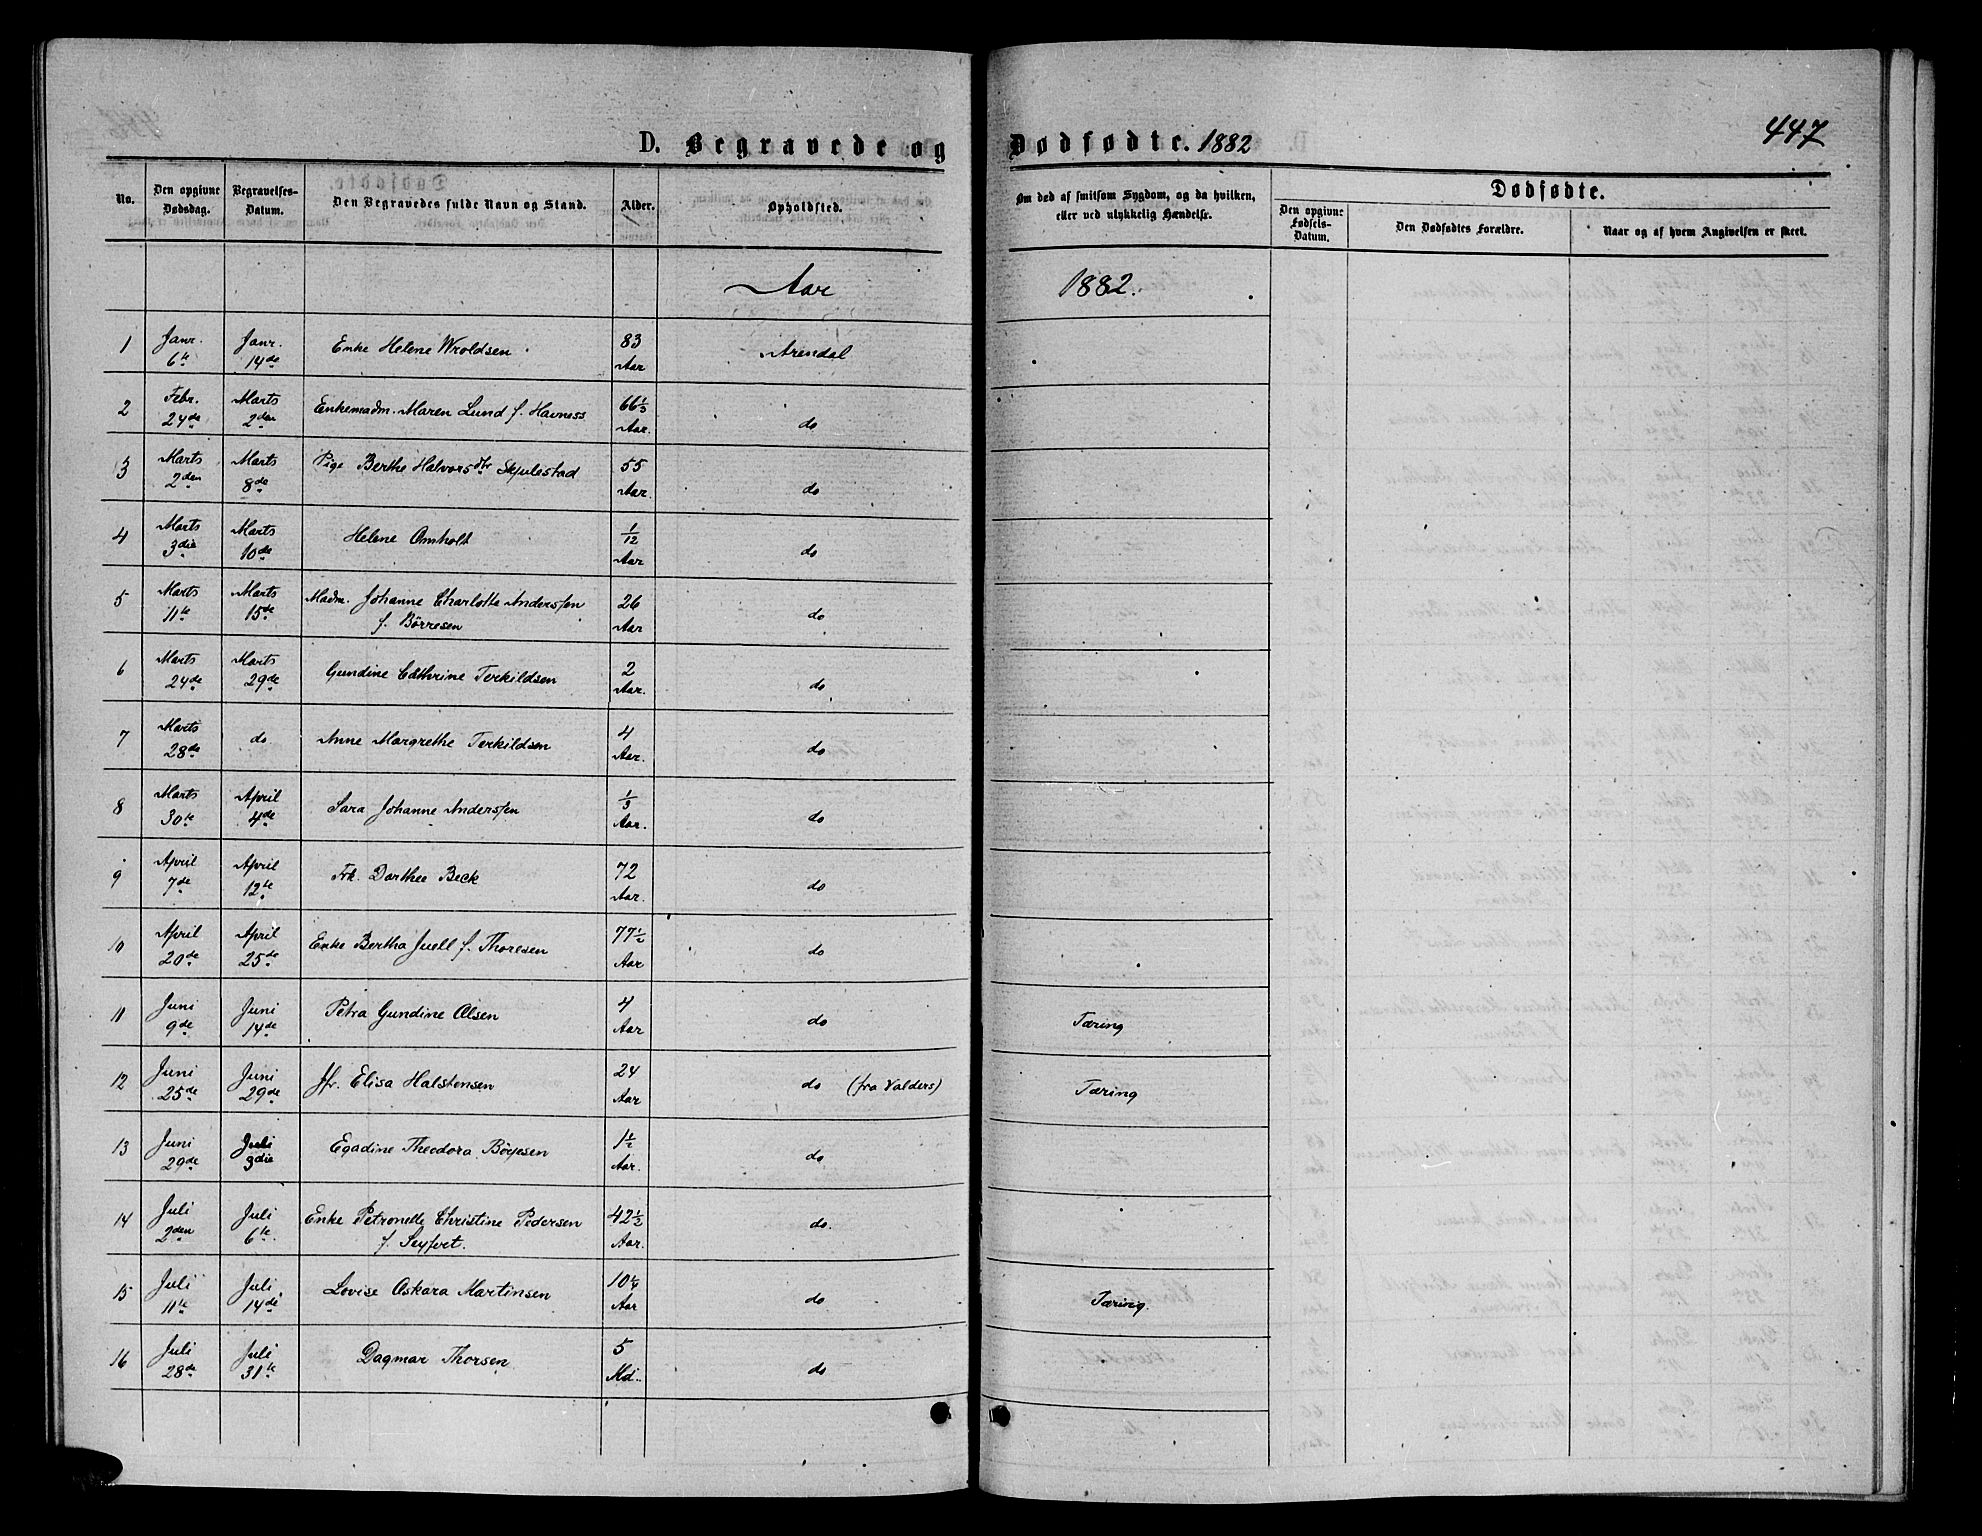 D. Begravede og Dødfødte. 1882
447
No.
Den opgivne Dødsdag.
Begravelses-Datum.
Den Begravedes fulde Navn og Stand.
Alder.
Opholdsted.
Om død af smitsom Sygdom, og da hvilken, eller ved ulykkelig Hændelse.
Dødfødte.
Den opgivne Fødsels-Datum.
Den Dødfødtes Forældre.
Naar og af hvem Angivelsen er skeet.
Aar 1882.
1 Janr. 6te Janr. 14de Enke Helene Wroldsen 83 Aar Arendal
2 Febr. 24de Marts 2den Enkemadm. Maren Lund f. Havness 66 1/3 Aar. do
3 Marts 2den Marts 8de Pige Berthe Halvorsdtr Skjulestad 55 Aar. do
4 Marts 3die Marts 10de Helene Omholt 1/12 Aar do
5 Marts 11te Marts 15de Madm. Johanne Charlotte Anderssen 26 Aar do
f. Börresen
6 Marts 24de Marts 29de Gundine Cathrine Terkildsen 2 Aar. do
7 Marts 28de do Anne Margrethe Terkildsen 4 Aar. do
8 Marts 30te April 4de Sara Johanne Anderssen 1/3 Aar. do
9 April 7de April 12te Frk. Dorthee Beck 72 Aar. do
10 April 20de April 25de Enke Bertha Juell f. Thoresen 77 1/2 Aar do
11 Juni 9de Juni 14de Petra Gundine Olsen 4 Aar do Tæring
12 Juni 25de Juni 29de Jfr. Elisa Halstensen 24 Aar do (fra Valders) Tæring
13 Juni 29de Juli 3die Egadine Theodora 1 1/2 Aar. do
14 Juli 2den Juli 6te Enke Petronelle Christine Pedersen 42 1/2 Aar. do
f. Seyfret.
15 Juli 11te Juli 14de Lovise Oskara Martinsen Aar do Tæring.
16 Juli 28de Juli 31te Dagmar Thorsen 5 Md. do